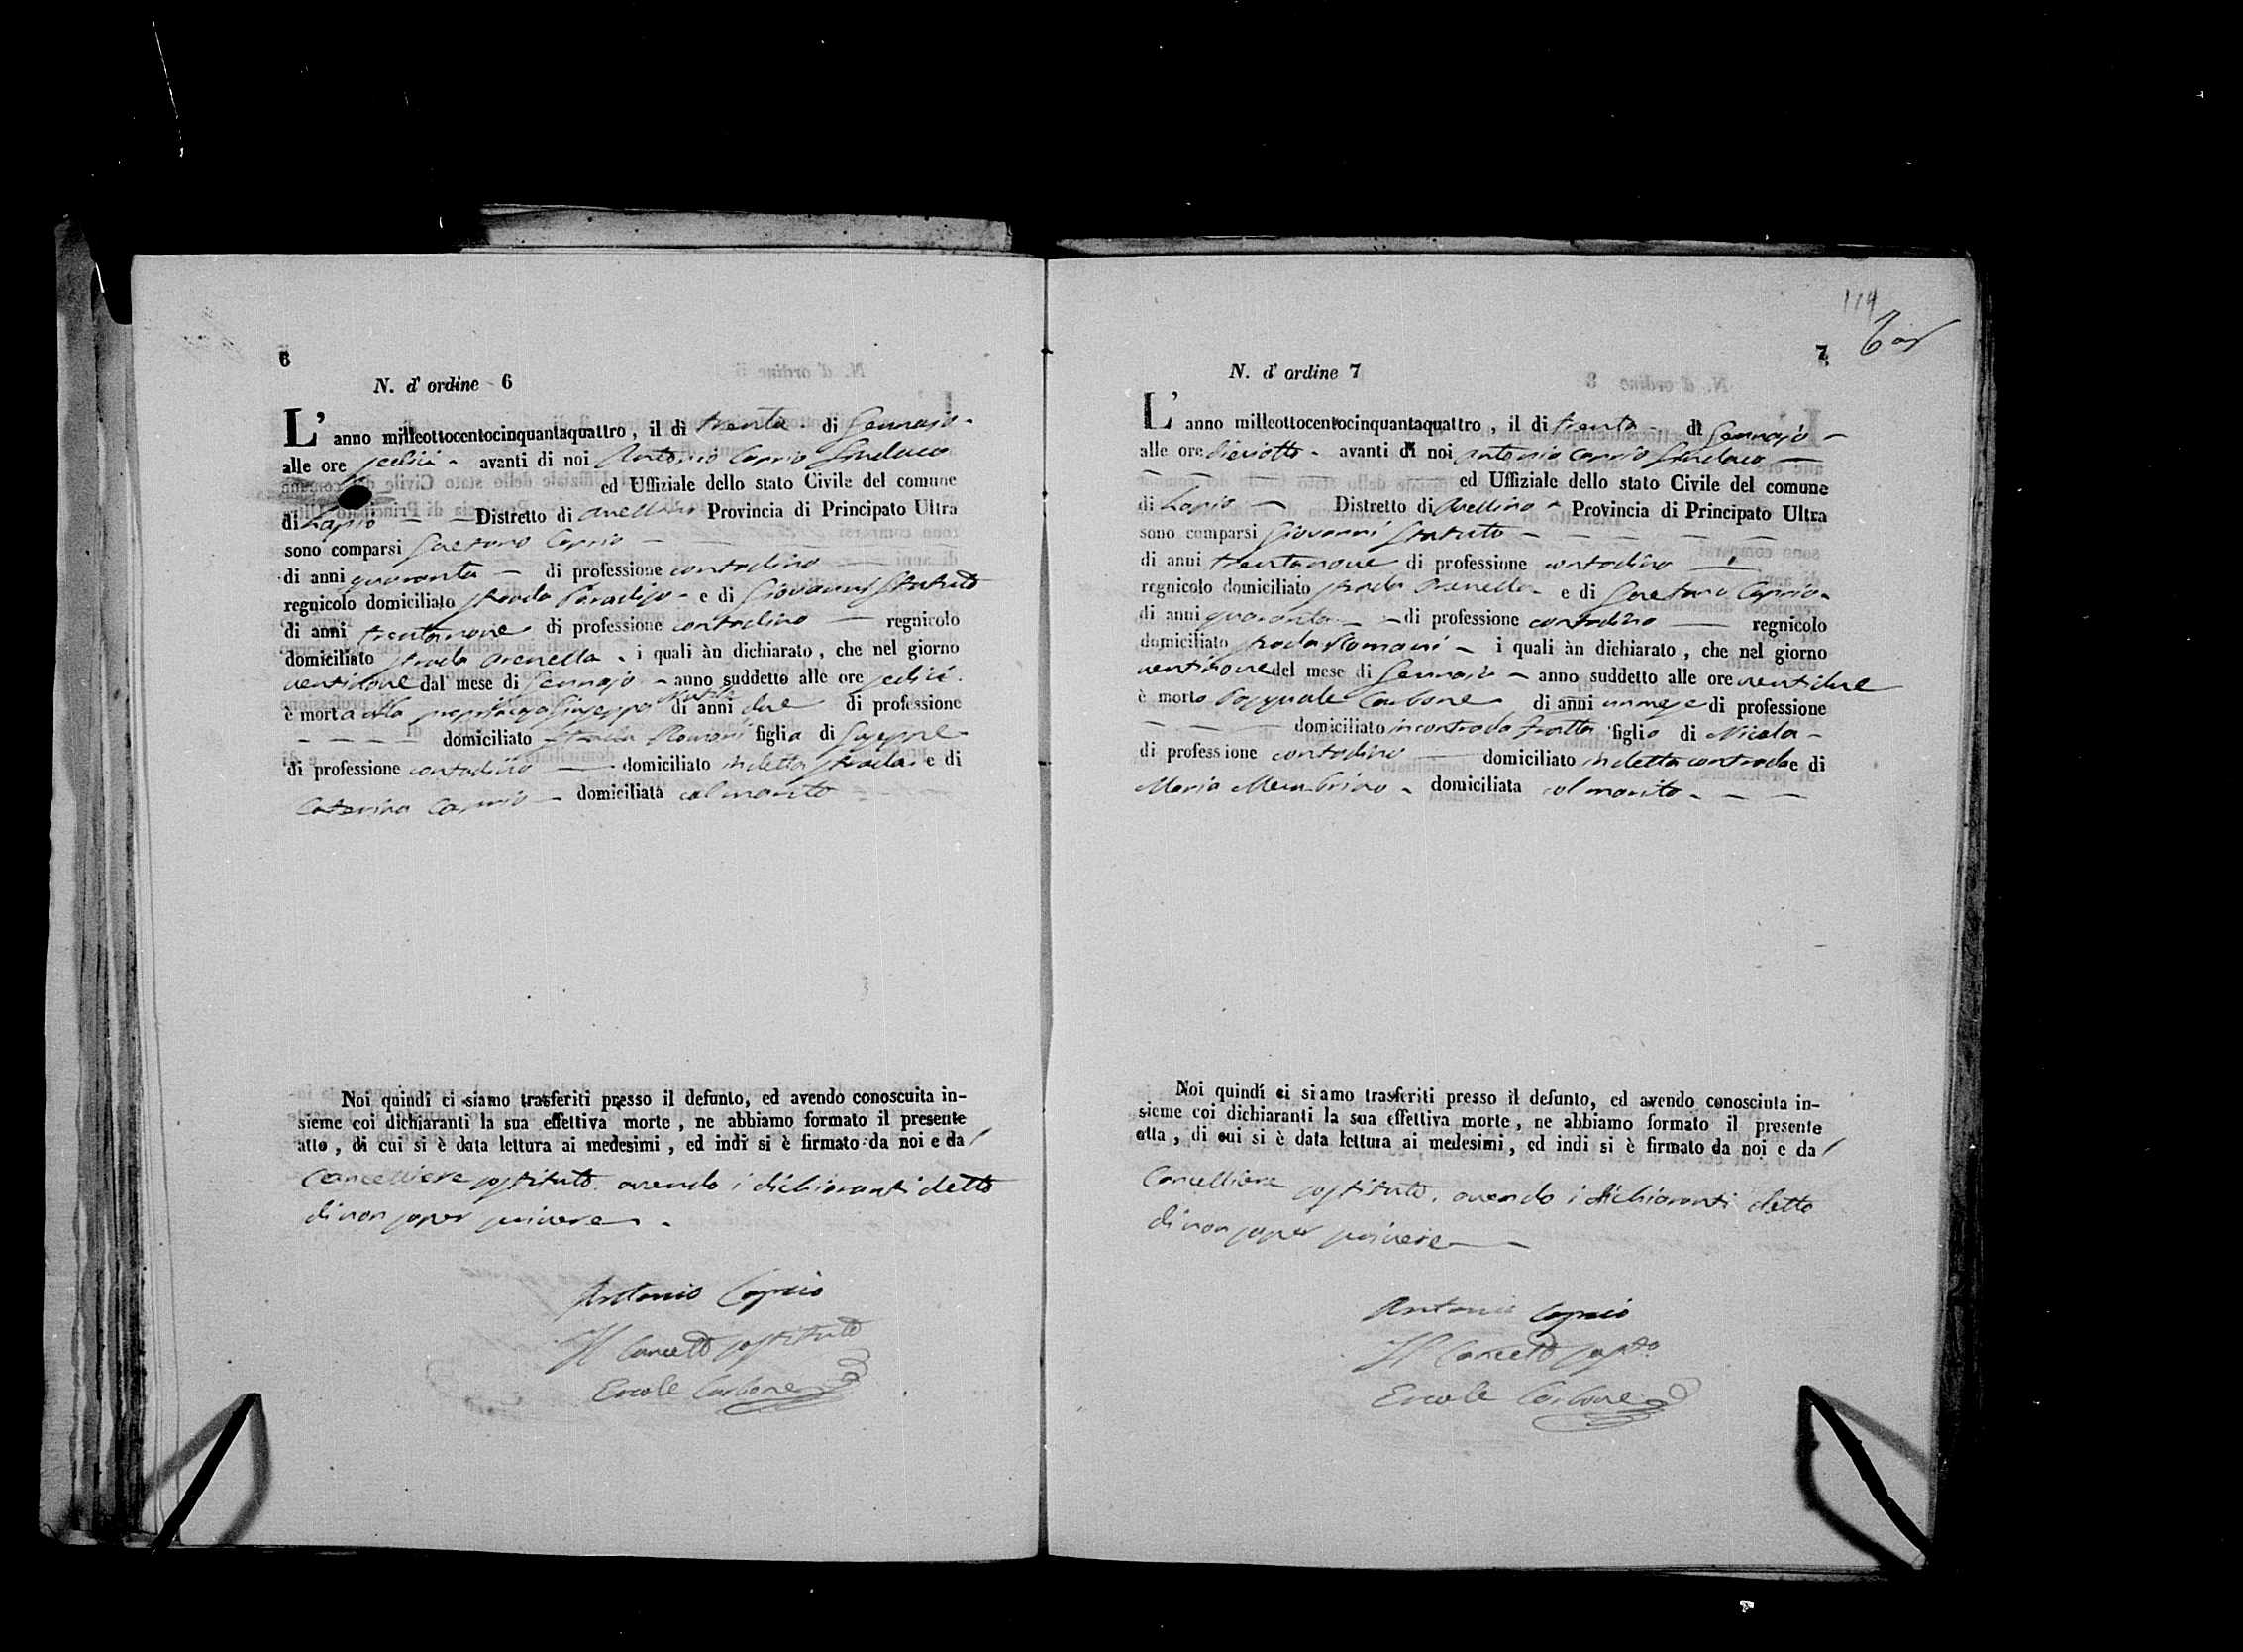 6
N. d' ordine 6
L' anno milleottocentocinquantaquattro, il di trenta di Gennajo
alle ore sedici avanti di noi Antonio Caprio Sindaco
ed Uffiziale dello stato Civile del comune
di Lapio Distretto di Avellino Provincia di Principato Ultra
sono comparsi Gaetano Caprio
di anni quaranta di professione contadino
regnicolo domiciliato strada Paradiso e di Giovanni Statuto
di anni trentanove di professione contadino regnicolo
domiciliato strada Arenella i quali àn dichiarato, che nel giorno
ventinove dal mese di Gennajo anno suddetto alle ore sedici
è morta Giuseppa di anni due di professione
domiciliato strada Romani figlia di Giuseppe
di professione contadino domiciliato in detta strada e di
Caterina Caprio domiciliata col marito
Noi quindi ci siamo trasferiti presso il defunto, ed avendo conosciuta in-
sieme coi dichiaranti la sua effettiva morte, ne abbiamo formato il presente
atto, di cui si è data lettura ai medesimi, ed indi si è firmato da noi e da
Cancelliere sostituto. avendo i dichiaranti detto
di non saper scrivere
Antonio Caprio
Il Cancell sostituto
Ercole Carbone
114
7
N. d' ordine 7
L' anno milleottocentocinquantaquattro, il di trenta di Gennajo
alle ore dieciotto avanti di noi Antonio Caprio Sindaco
ed Uffiziale dello stato Civile del comune
di Lapio Distretto di Avellino Provincia di Principato Ultra
sono comparsi Giovanni Statuto
di anni trentanove di professione contadino
regnicolo domiciliato strada Arenella e di Gaetano Caprio
di anni quaranta di professione contadino regnicolo
domiciliato strada Romani i quali àn dichiarato, che nel giorno
ventinove del mese di Gennajo anno suddetto alle ore ventidue
è morto Pasquale Carbone di anni un mese di professione
domiciliato in contrada Tratta figlio di Nicola
di professione contadino domiciliato in detta contrada e di
Maria Membrino domiciliata col marito
Noi quindi ci siamo trasferiti presso il defunto, ed avendo conosciuta in-
sieme coi dichiaranti la sua effettiva morte, ne abbiamo formato il presente
atta, di cui si è data lettura ai medesimi, ed indi si è firmato da noi e da
Cancelliere sostituto. avendo i dichiaranti detto
di non saper scrivere
Antonio Caprio
Il Cancell sosto
Ercole Carbone